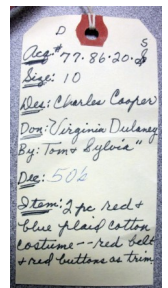 D S
Acq# 77.86.20.
Size: 10
Des: Charles Cooper
Don: "Virginia Dulany
By: Tom & Sylvia"
Dec: 50's
Item: 2 pc red &
blue plaid cotton
costume -- red belt
& red buttons as trim